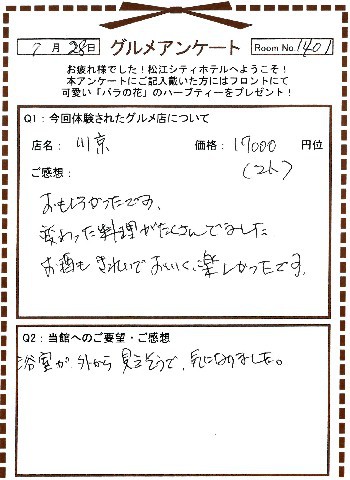 7月28日 グルメアンケート Room No.1401
お疲れ様でした！松江シティホテルへようこそ！
本アンケートにご記入戴いた方にはフロントにて
可愛い「バラの花」のハーブティーをプレゼント！
Q1：今回体験されたグルメ店について
店名： 川京 価格： 17000 円位
(2人)
ご感想：
おもしろかったです、
変わった料理がたくさんでました
お酒もきれいで おいしく、楽しかったです。
Q2：当館へのご要望・ご感想
浴室が外から見えそうで、気になりました。